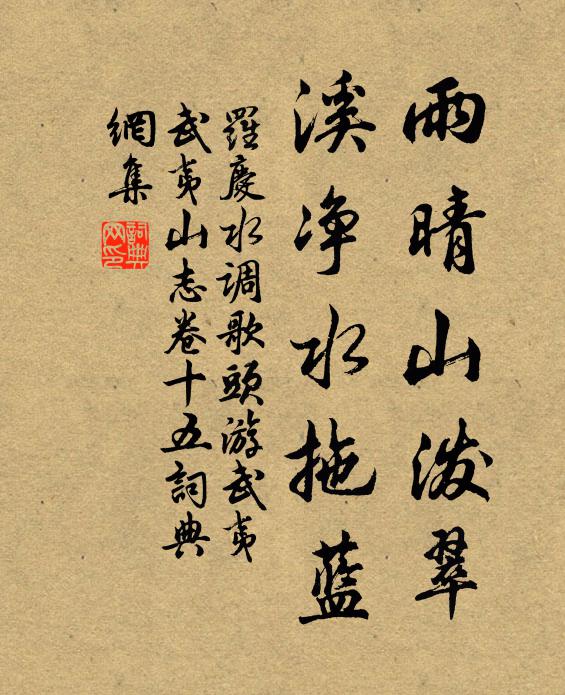 雨晴山泼翠
溪净水拖蓝
羅慶水调歌頭游武夷
武夷山志卷十五詞典
網集
詞典
网印